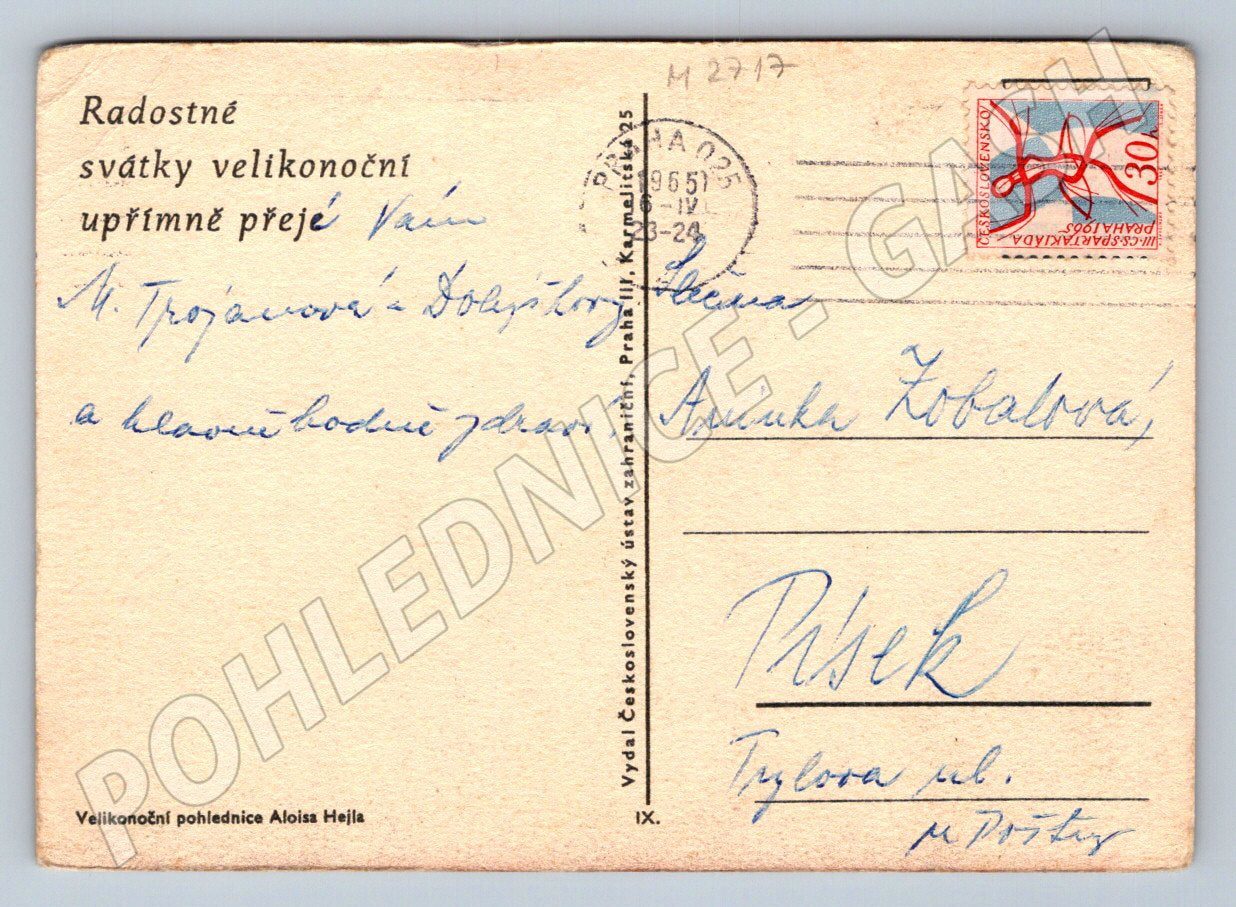 M 2717
Radostné
svátky velikonoční
upřímně přejé Vám
M. Trojanová a
a hlavně hodně zdraví!
Velikonoční pohlednice Aloisa Hejla
Vydal Československý ústav zahraniční, Praha III, Karmelitská 25
IX.
PRAHA 025
1965
16-IV.
23-24
ČESKOSLOVENSKO
30 h
III·CS·SPARTAKIÁDA
PRAHA 1965
Slečna
Aninka Zobalová,
Písek
Tylova ul.
u Pošty
POHLEDNICE - GASH